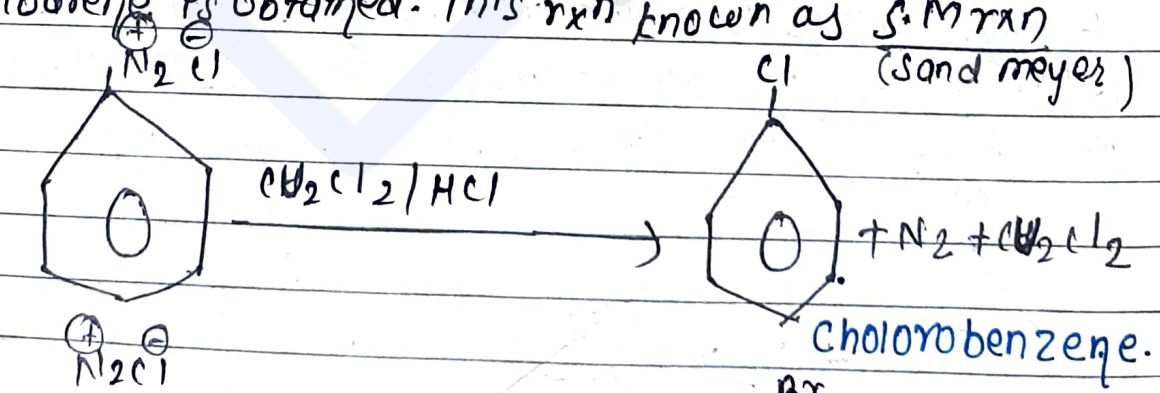 is obtained. This rxn known as S.M rxn
(sand meyer)
⊕ ⊖
N2 Cl
Cl
Cu2Cl2/HCl
+N2+Cu2Cl2
Cholorobenzene.
⊕ ⊖
N2Cl
Br